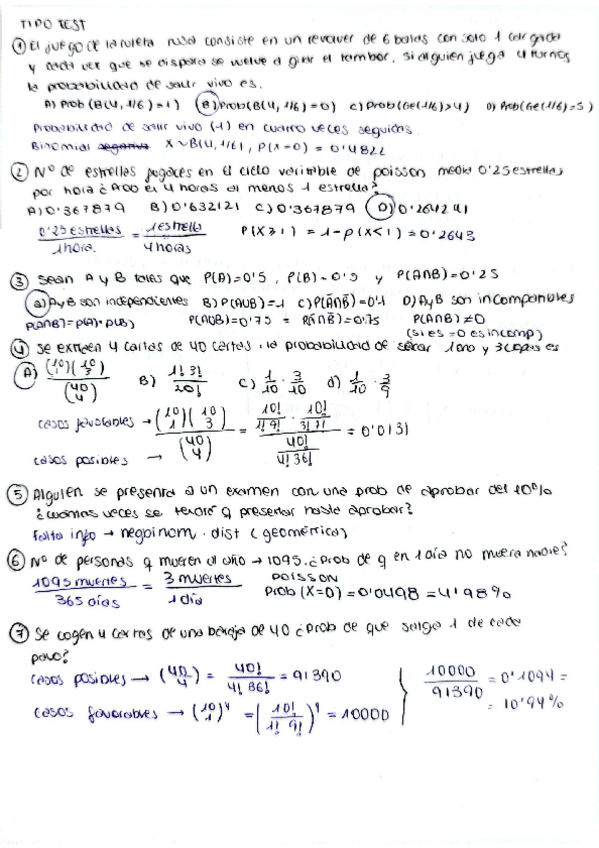 TIPO TEST
① El juego de la ruleta rusa consiste en un revolver de 6 balas con solo 1 cargada
y cada vez que se dispara se vuelve a girar el tambor. Si alguien juega 4 turnos
la probabilidad de salir vivo es.
A) Prob (B(4, 1/6) = 1) B) Prob (B(4, 1/6) = 0) C) Prob (Ge(1/6) > 4) D) Prob (Ge(1/6) = 5)
Probabilidad de salir vivo (1) en cuatro veces seguidas.
Binomial negativa X ~ B(4, 1/6), P(X=0) = 0'4822
② Nº de estrellas fugaces en el cielo variable de poisson media 0'25 estrellas
por hora ¿Prob en 4 horas al menos 1 estrella?
A) 0'367879 B) 0'632121 C) 0'367879 D) 0'264241
0'25 estrellas / 1 hora. = 1 estrella / 4 horas P(X ≥ 1) = 1 - P(X < 1) = 0'2643
③ Sean A y B tales que P(A) = 0'5, P(B) = 0'5 y P(A∩B) = 0'25
a) A y B son independientes B) P(A∪B) = 1 C) P(Ā∩B̄) = 0'1 D) A y B son incompatibles
P(A∩B) = P(A) · P(B) P(A∪B) = 0'75 = P(Ā∩B̄) = 0'75 P(A∩B) ≠ 0
(si es = 0 es incomp)
④ Se extraen 4 cartas de 40 cartas. la probabilidad de sacar 1 oro y 3 copas es
A) (10 1)(10 3) / (40 4) B) 1! 3! / 20! C) 1/10 · 3/10 d) 1/10 · 3/9
casos favorables → (10 1)(10 3) / (40 4) = 10!/1! 9! · 10!/3! 7! / 40!/4! 36! = 0'0131
casos posibles →
⑤ Alguien se presenta a un examen con una prob de aprobar del 10%
¿cuantas veces se tendrá q presentar hasta aprobar?
Falta info → negbinom.dist (geométrica)
⑥ Nº de personas q mueren al año → 1095. ¿Prob de q en 1 día no muera nadie?
1095 muertes / 365 días = 3 muertes / 1 día POISSON
Prob (X=0) = 0'0498 = 4'98%
⑦ Se cogen 4 cartas de una baraja de 40 ¿Prob de que salga 1 de cada
palo?
casos posibles → (40 4) = 40! / 4! 36! = 91390
casos favorables → (10 1)⁴ = (10! / 1! 9!)⁴ = 10000
10000 / 91390 = 0'1094 =
= 10'94%